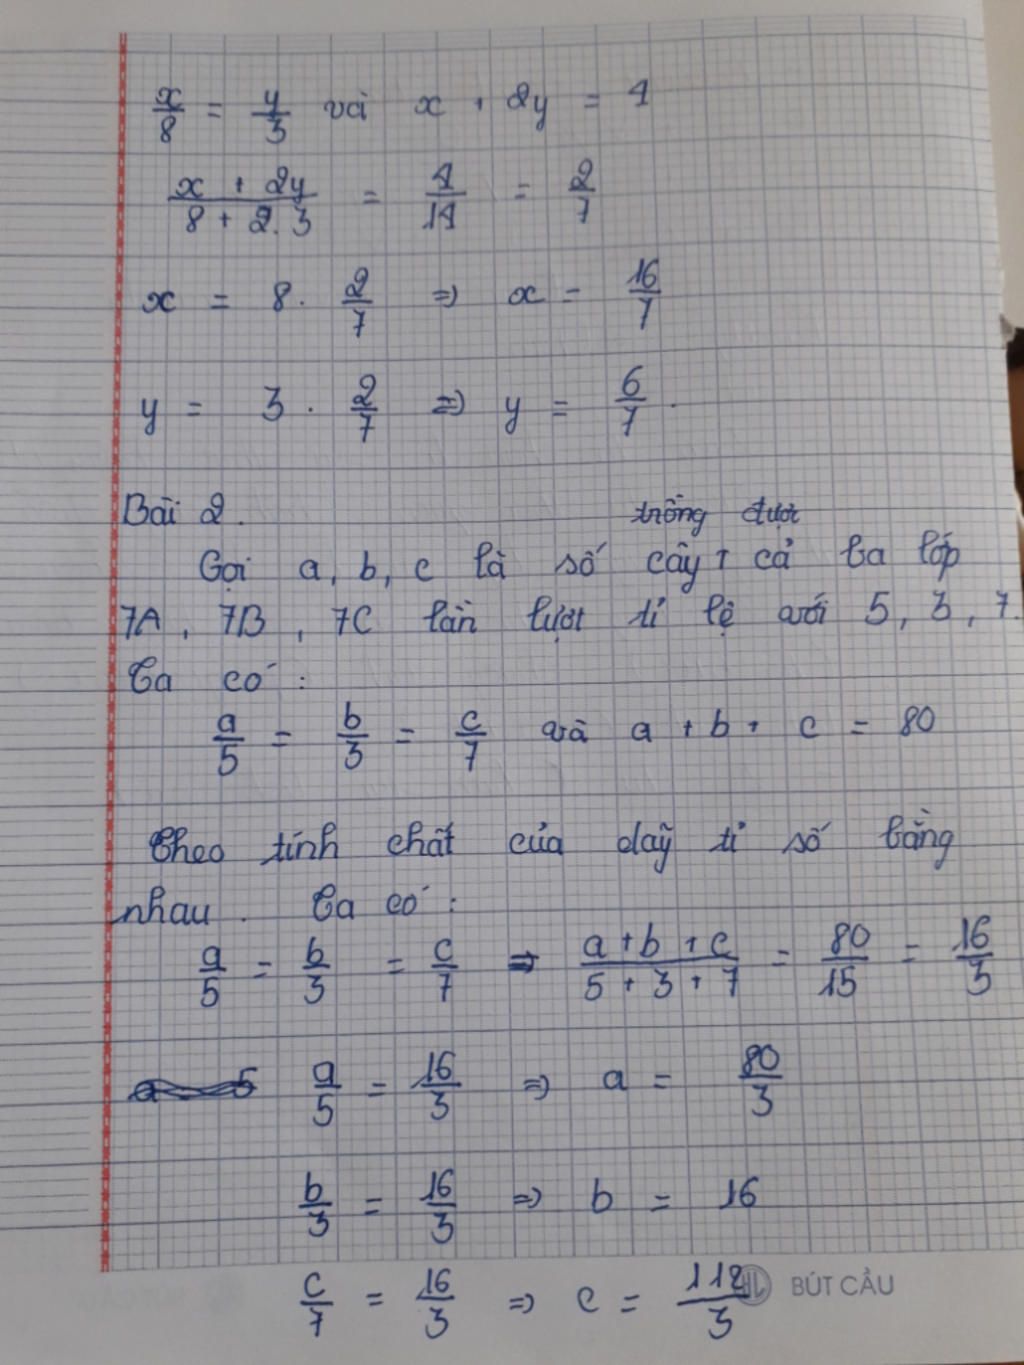 x/8 = y/3 và x + 2y = 4
(x + 2y)/(8 + 2.3) = 4/14 = 2/7
x = 8 . 2/7 => x = 16/7
y = 3 . 2/7 => y = 6/7.
Bài 2.
trồng được
Gọi a, b, c là số cây cả ba lớp
7A, 7B, 7C lần lượt tỉ lệ với 5, 3, 7.
Ta có:
a/5 = b/3 = c/7 và a + b + c = 80
Theo tính chất của dãy tỉ số bằng
nhau. Ta có:
a/5 = b/3 = c/7 = (a + b + c)/(5 + 3 + 7) = 80/15 = 16/3
a/5 = 16/3 => a = 80/3
b/3 = 16/3 => b = 16
c/7 = 16/3 => c = 112/3
BÚT CẦU